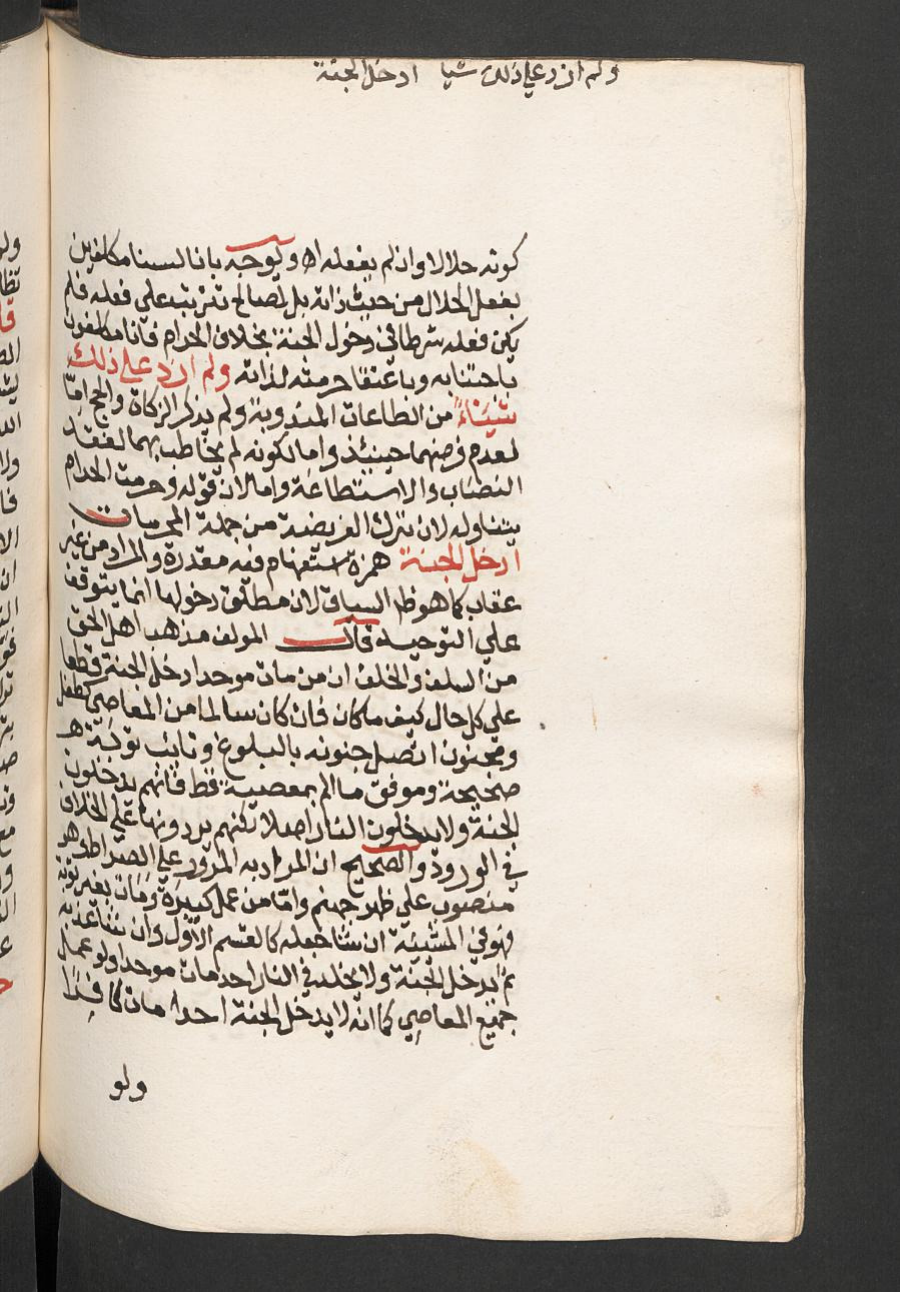 ولم ازد علي ذلك شيا ادخل الجنة
كونه حلالا وان لم يفعله اه ويوجه بانا لسنا مكلفين
بفعل الحلال من حيث ذاته بل لمصالح تترتب علي فعله فلم
يكن فعله شرطا في دخول الجنة بخلاف الحرام فانا مكلفون
باجتنابه وباعتقاد حرمته لذاته ولم ازد علي ذلك
شيئاً من الطاعات المندوبة ولم يذكر الزكاة والحج امّا
لعدم فرضهما حينئذ واما لكونه لم يخاطب بهما لفقد
النصاب والاستطاعة واما لان قوله وحرمت الحرام
يتناوله لان ترك الفريضة من جملة المحرمات
ادخل الجنة همزة استفهام فيه مقدرة والمراد من غير
عقاب كما هو ظ السياق لان مطلق دخولها انما يتوقف
علي التوحيد قال المولف مذهب اهل الحق
من السلف والخلف ان من مات موحدا دخل الجنة قطعا
علي كل حال كيف ما كان فان كان سالما من المعاصي كطفل
ومجنون اتصل جنونه بالبلوغ وتايب توبة
صحيحة وموفق ما الم بمعصية قط فانهم يدخلون
الجنة ولا يدخلون النار اصلا لكنهم يردونها علي الخلاف
في الورود والصحيح ان المراد به المرور علي الصراط وهو
منصوب علي ظهر جهنم وامّا من عمل كبيرة ومات بغير توبة
فهو في المشيئة ان شا جعله كالقسم الاوّل وان شا عذبه
ثم يدخل الجنة ولا يخلد في النار احد مات موحدا ولو عمل
جميع المعاصي كما انه لا يدخل الجنة احدا مات كافرا
ولو